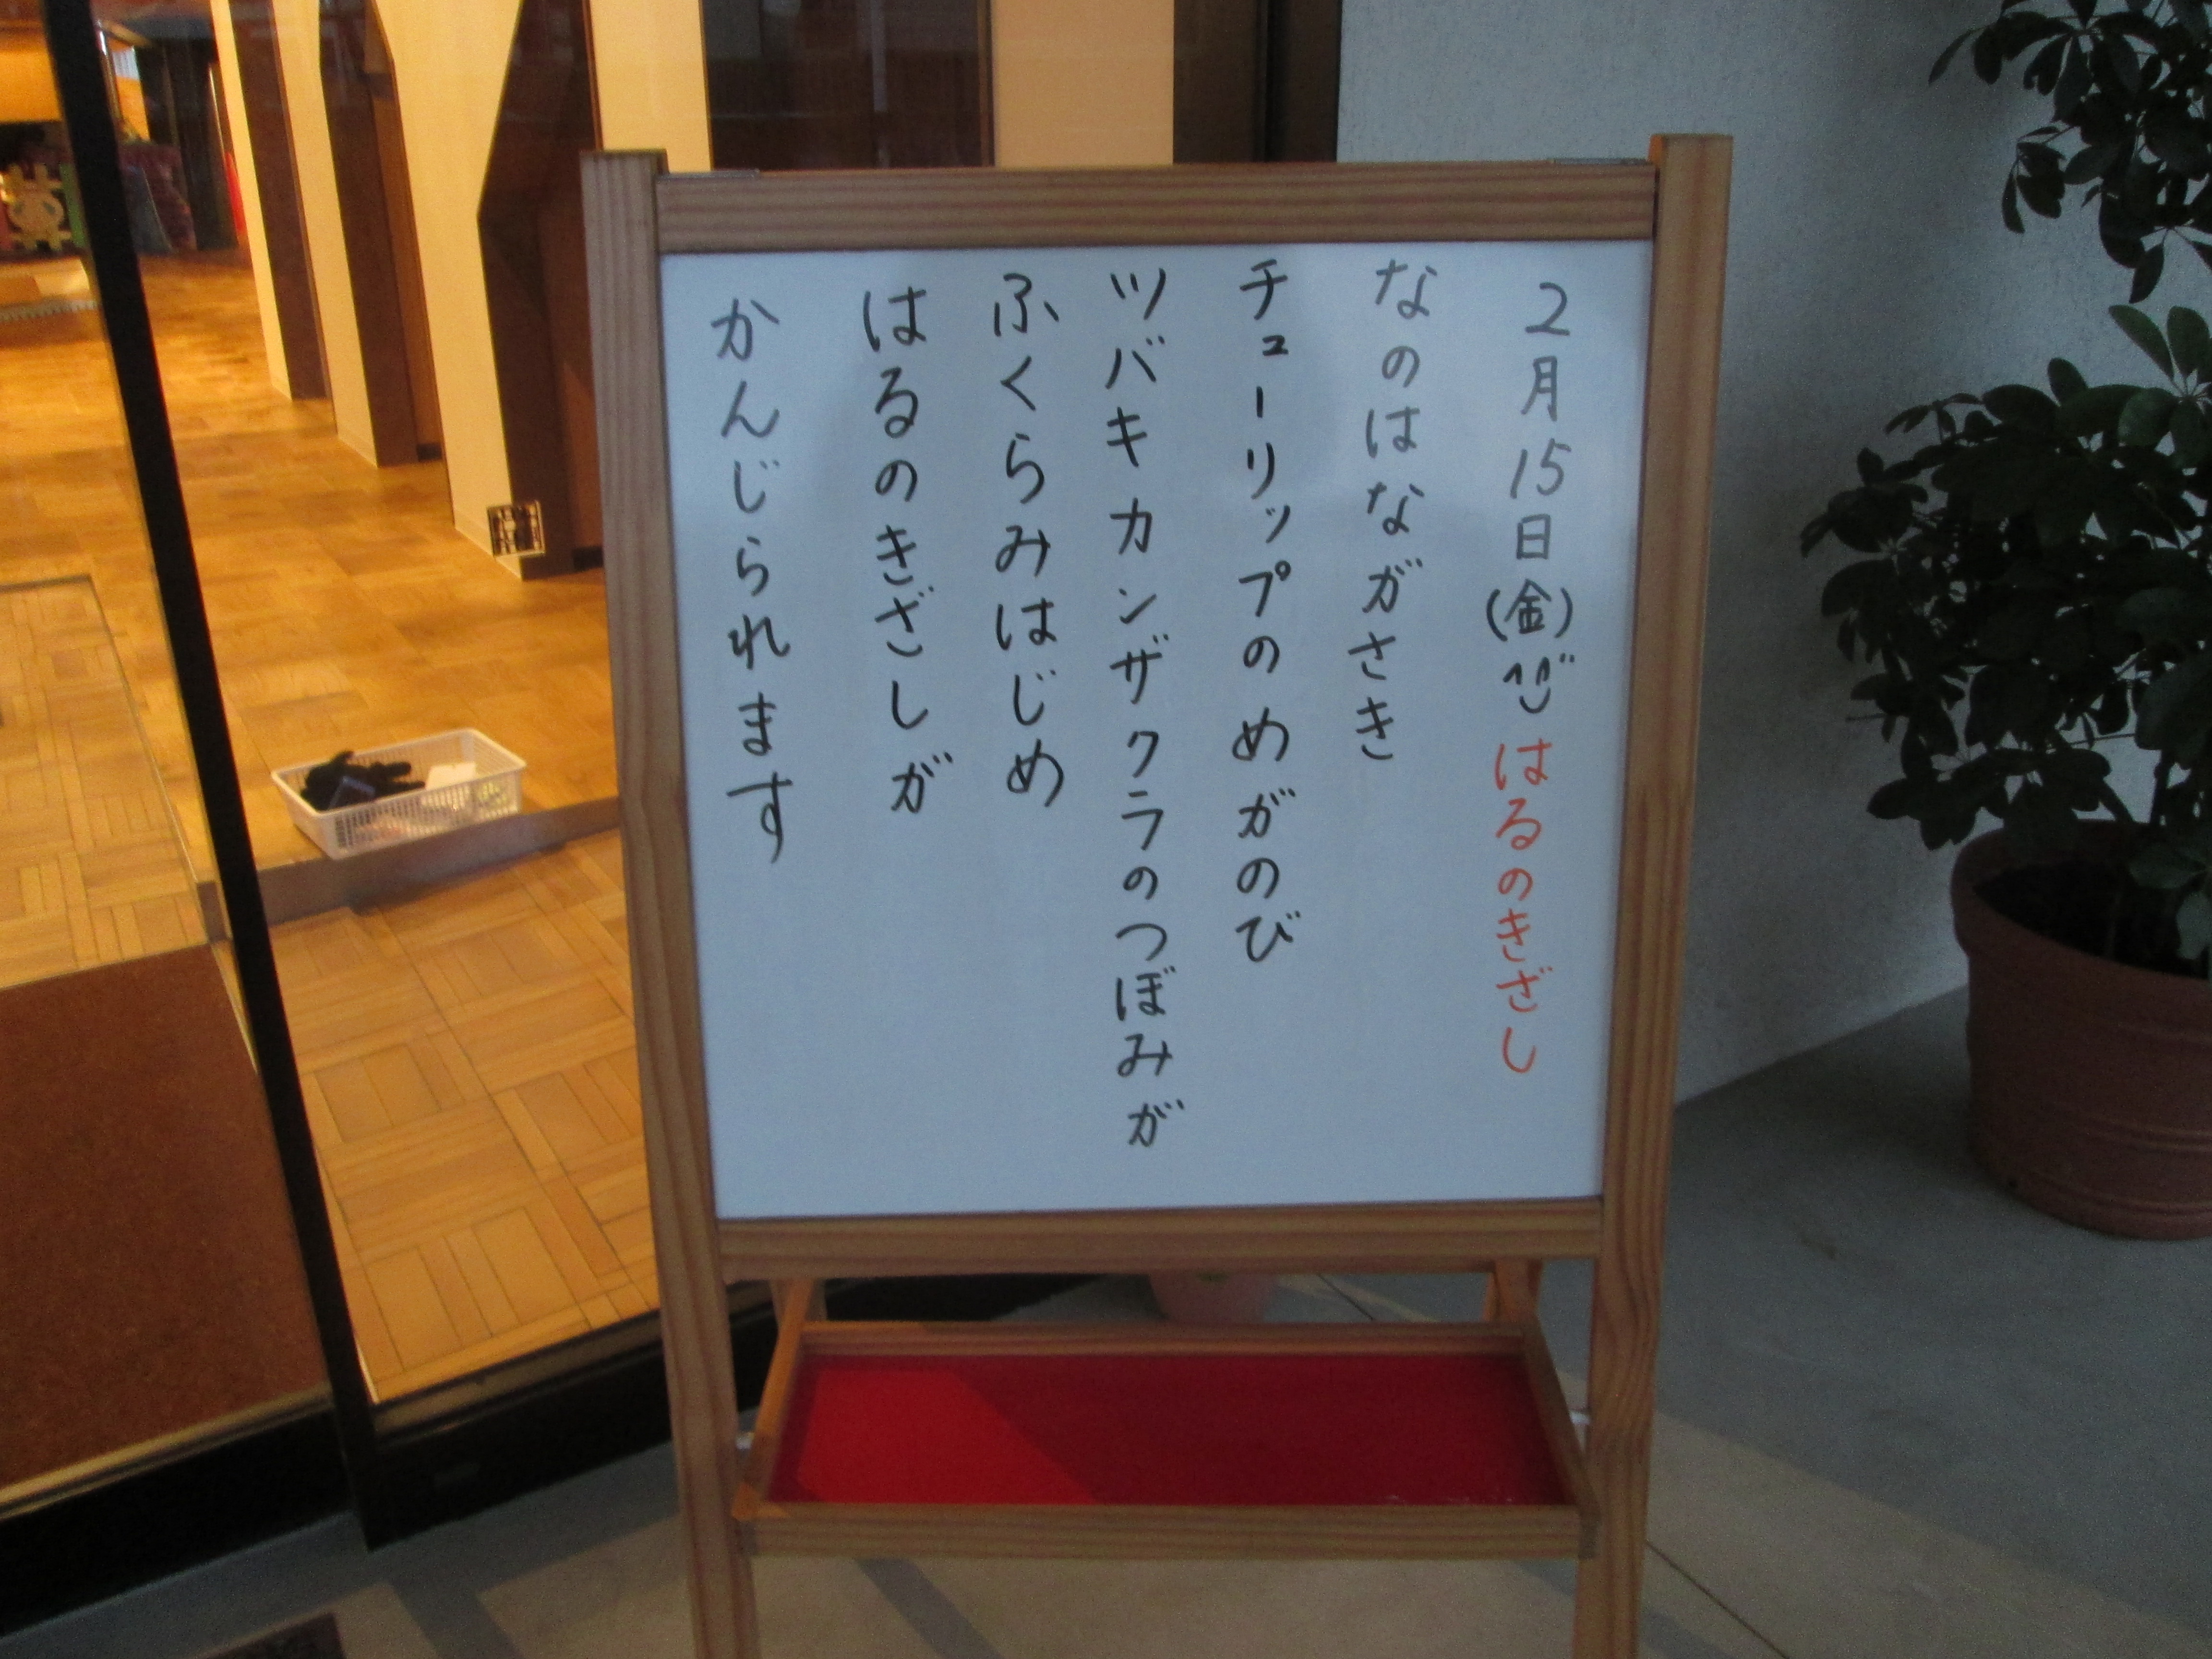 2月15日(金) はるのきざし
なのはながさき
チューリップのめがのび
ツバキカンザクラのつぼみが
ふくらみはじめ
はるのきざしが
かんじられます